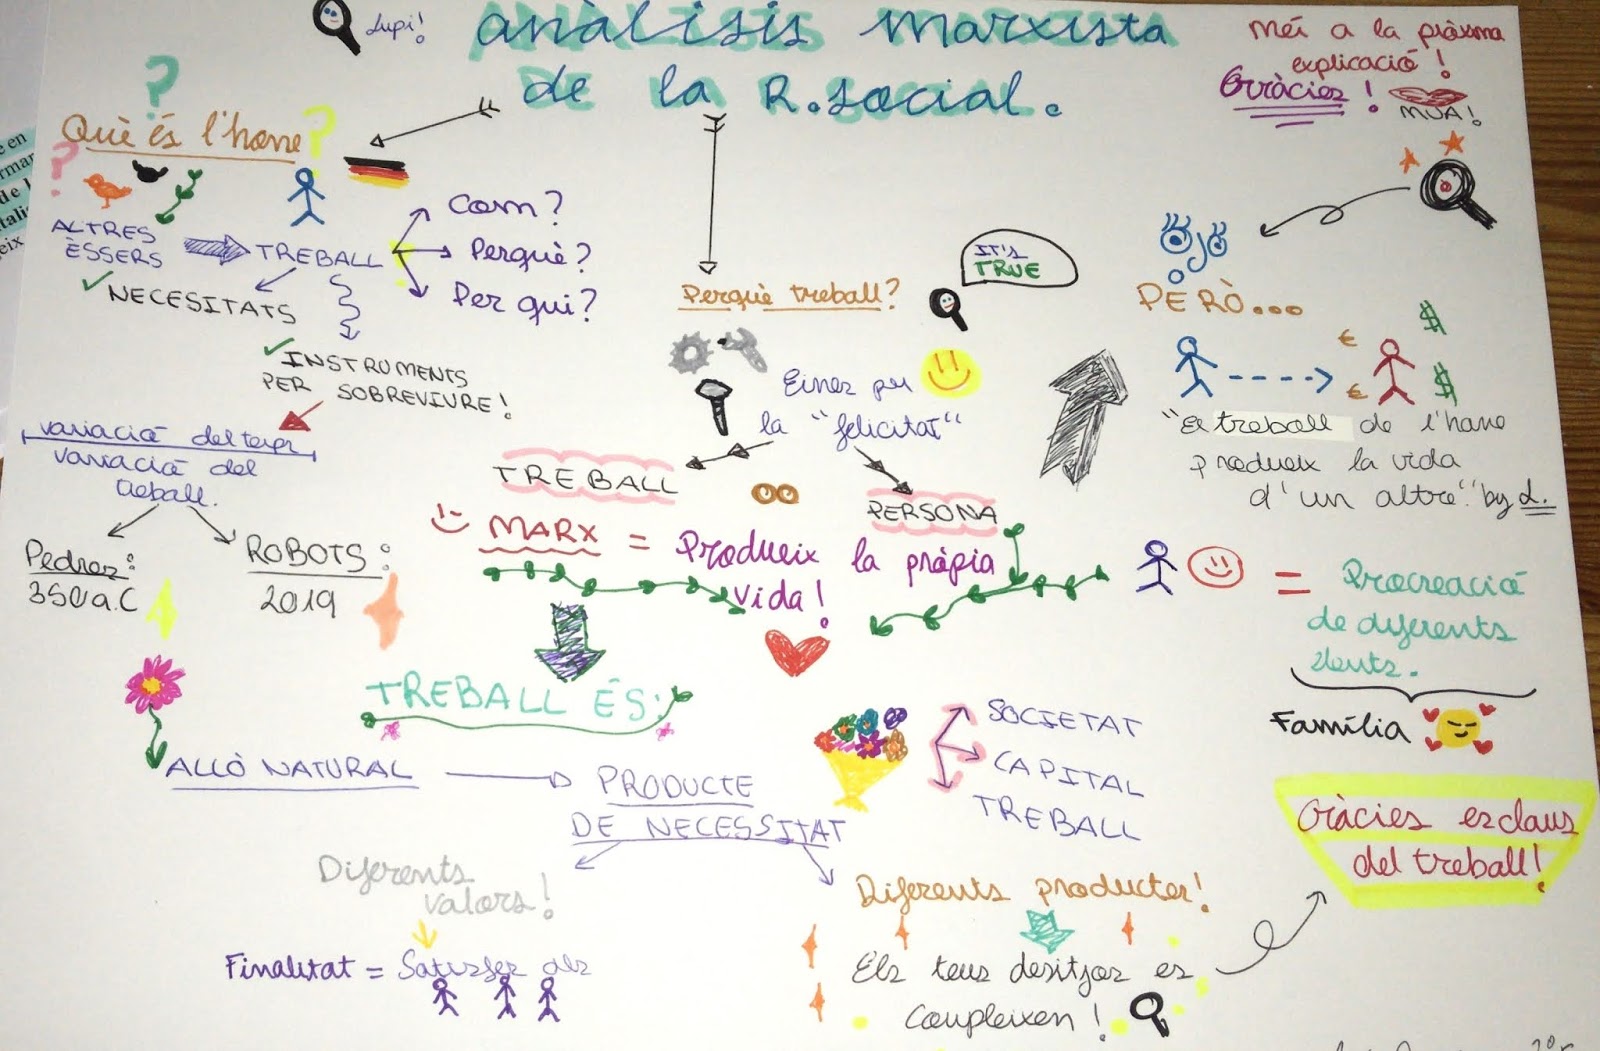 Lupi!
anàlisis marxista
de la R.social.
Mei a la pròxma
explicació!
Gràcies!
MUA!
Què és l'home
?
?
?
ALTRES
ÈSSERS
TREBALL
Com?
Perquè?
Per qui?
NECESITATS
INSTRUMENTS
PER SOBREVIURE!
variació del temps
variació del
treball.
Pedres:
350 a.C
ROBOTS:
2019
Perquè treball?
IT'S
TRUE
Eines per
la "felicitat"
TREBALL
PERSONA
MARX = Produeix la pròpia
vida!
PERÒ...
€
€
$
$
"El treball de l'home
produeix la vida
d'un altre" by L.
= Procreació
de diferents
Família
TREBALL ÉS:
ALLÒ NATURAL
PRODUCTE
DE NECESSITAT
SOCIETAT
CAPITAL
TREBALL
Gràcies esclaus
del treball!
Diferents
valors!
Finalitat = Satisfer als
Diferents productes!
Els teus desitjos es
Coupleixen!